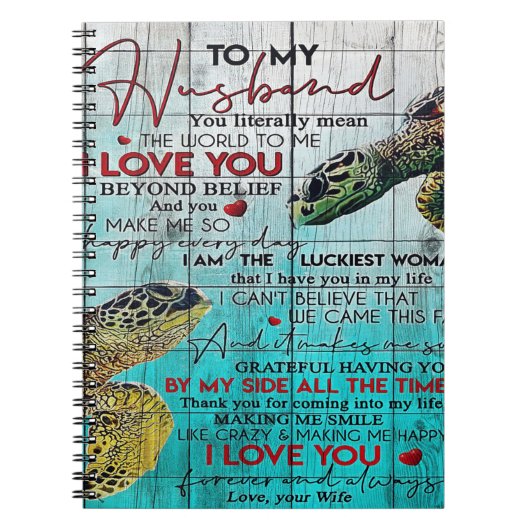 TO MY
Husband
You literally mean
THE WORLD TO ME
I LOVE YOU
BEYOND BELIEF
And you
MAKE ME SO
happy every day
I AM THE LUCKIEST WOMA
that I have you in my life
I CAN'T BELIEVE THAT
WE CAME THIS FA
And it makes me s
GRATEFUL HAVING YO
BY MY SIDE ALL THE TIME
Thank you for coming into my life
MAKING ME SMILE
LIKE CRAZY & MAKING ME HAPPY
I LOVE YOU
forever and always
Love, your Wife